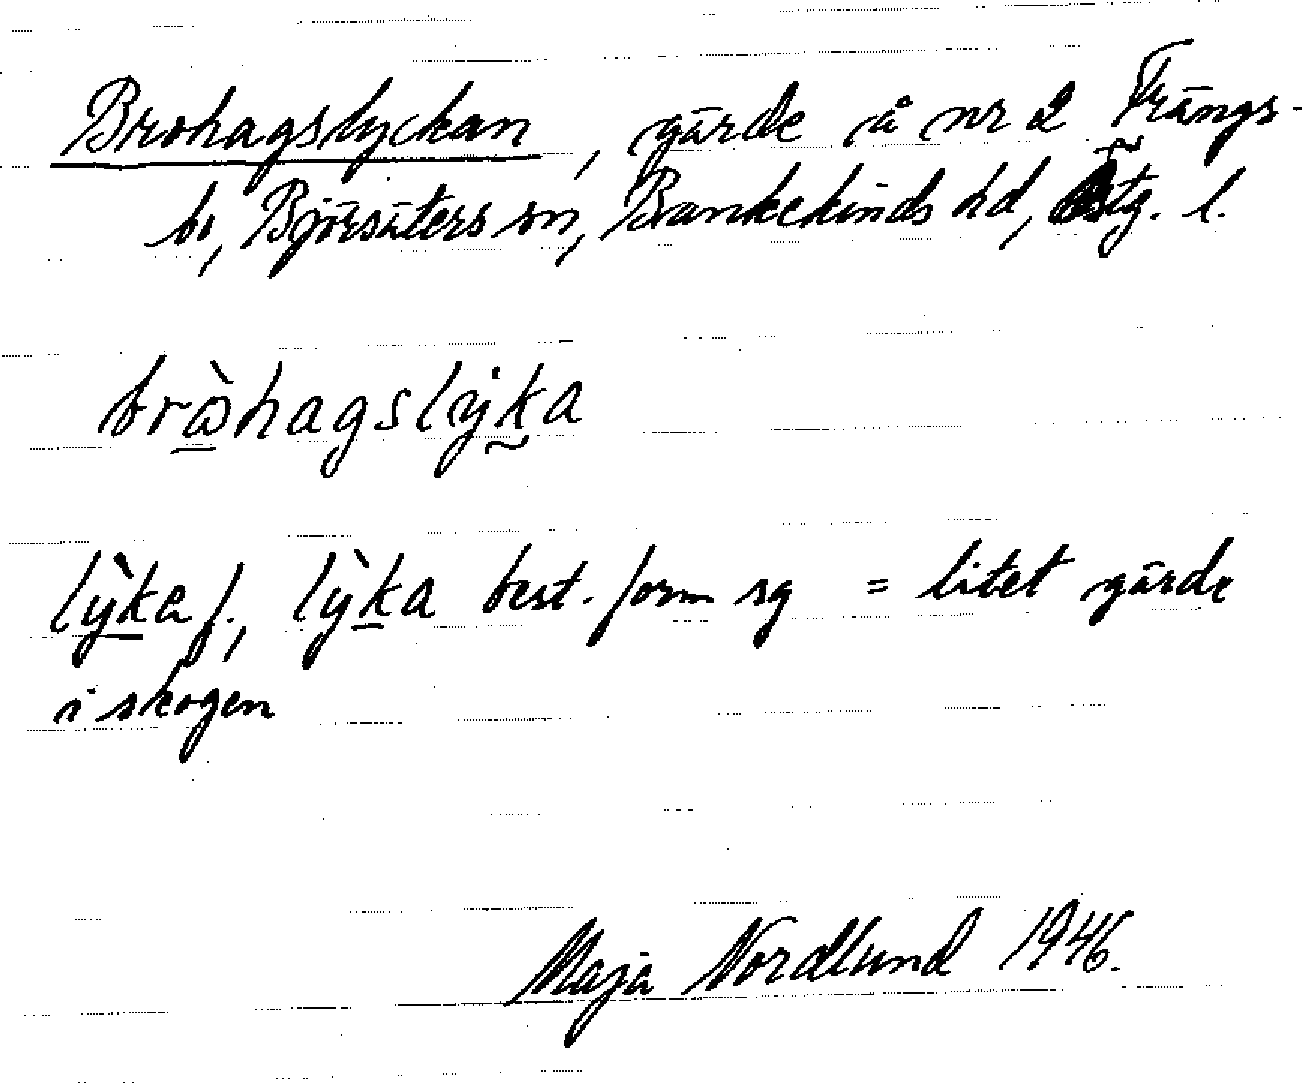 Brohagslyckan, gärde å nr 2 Trängs-
bo, Björsäters sn, Bankekinds hd, Östg. l.
bràhagslyka
lỳka f., lỳka best. form sg = litet gärde
i skogen
Maja Nordlund 1946.